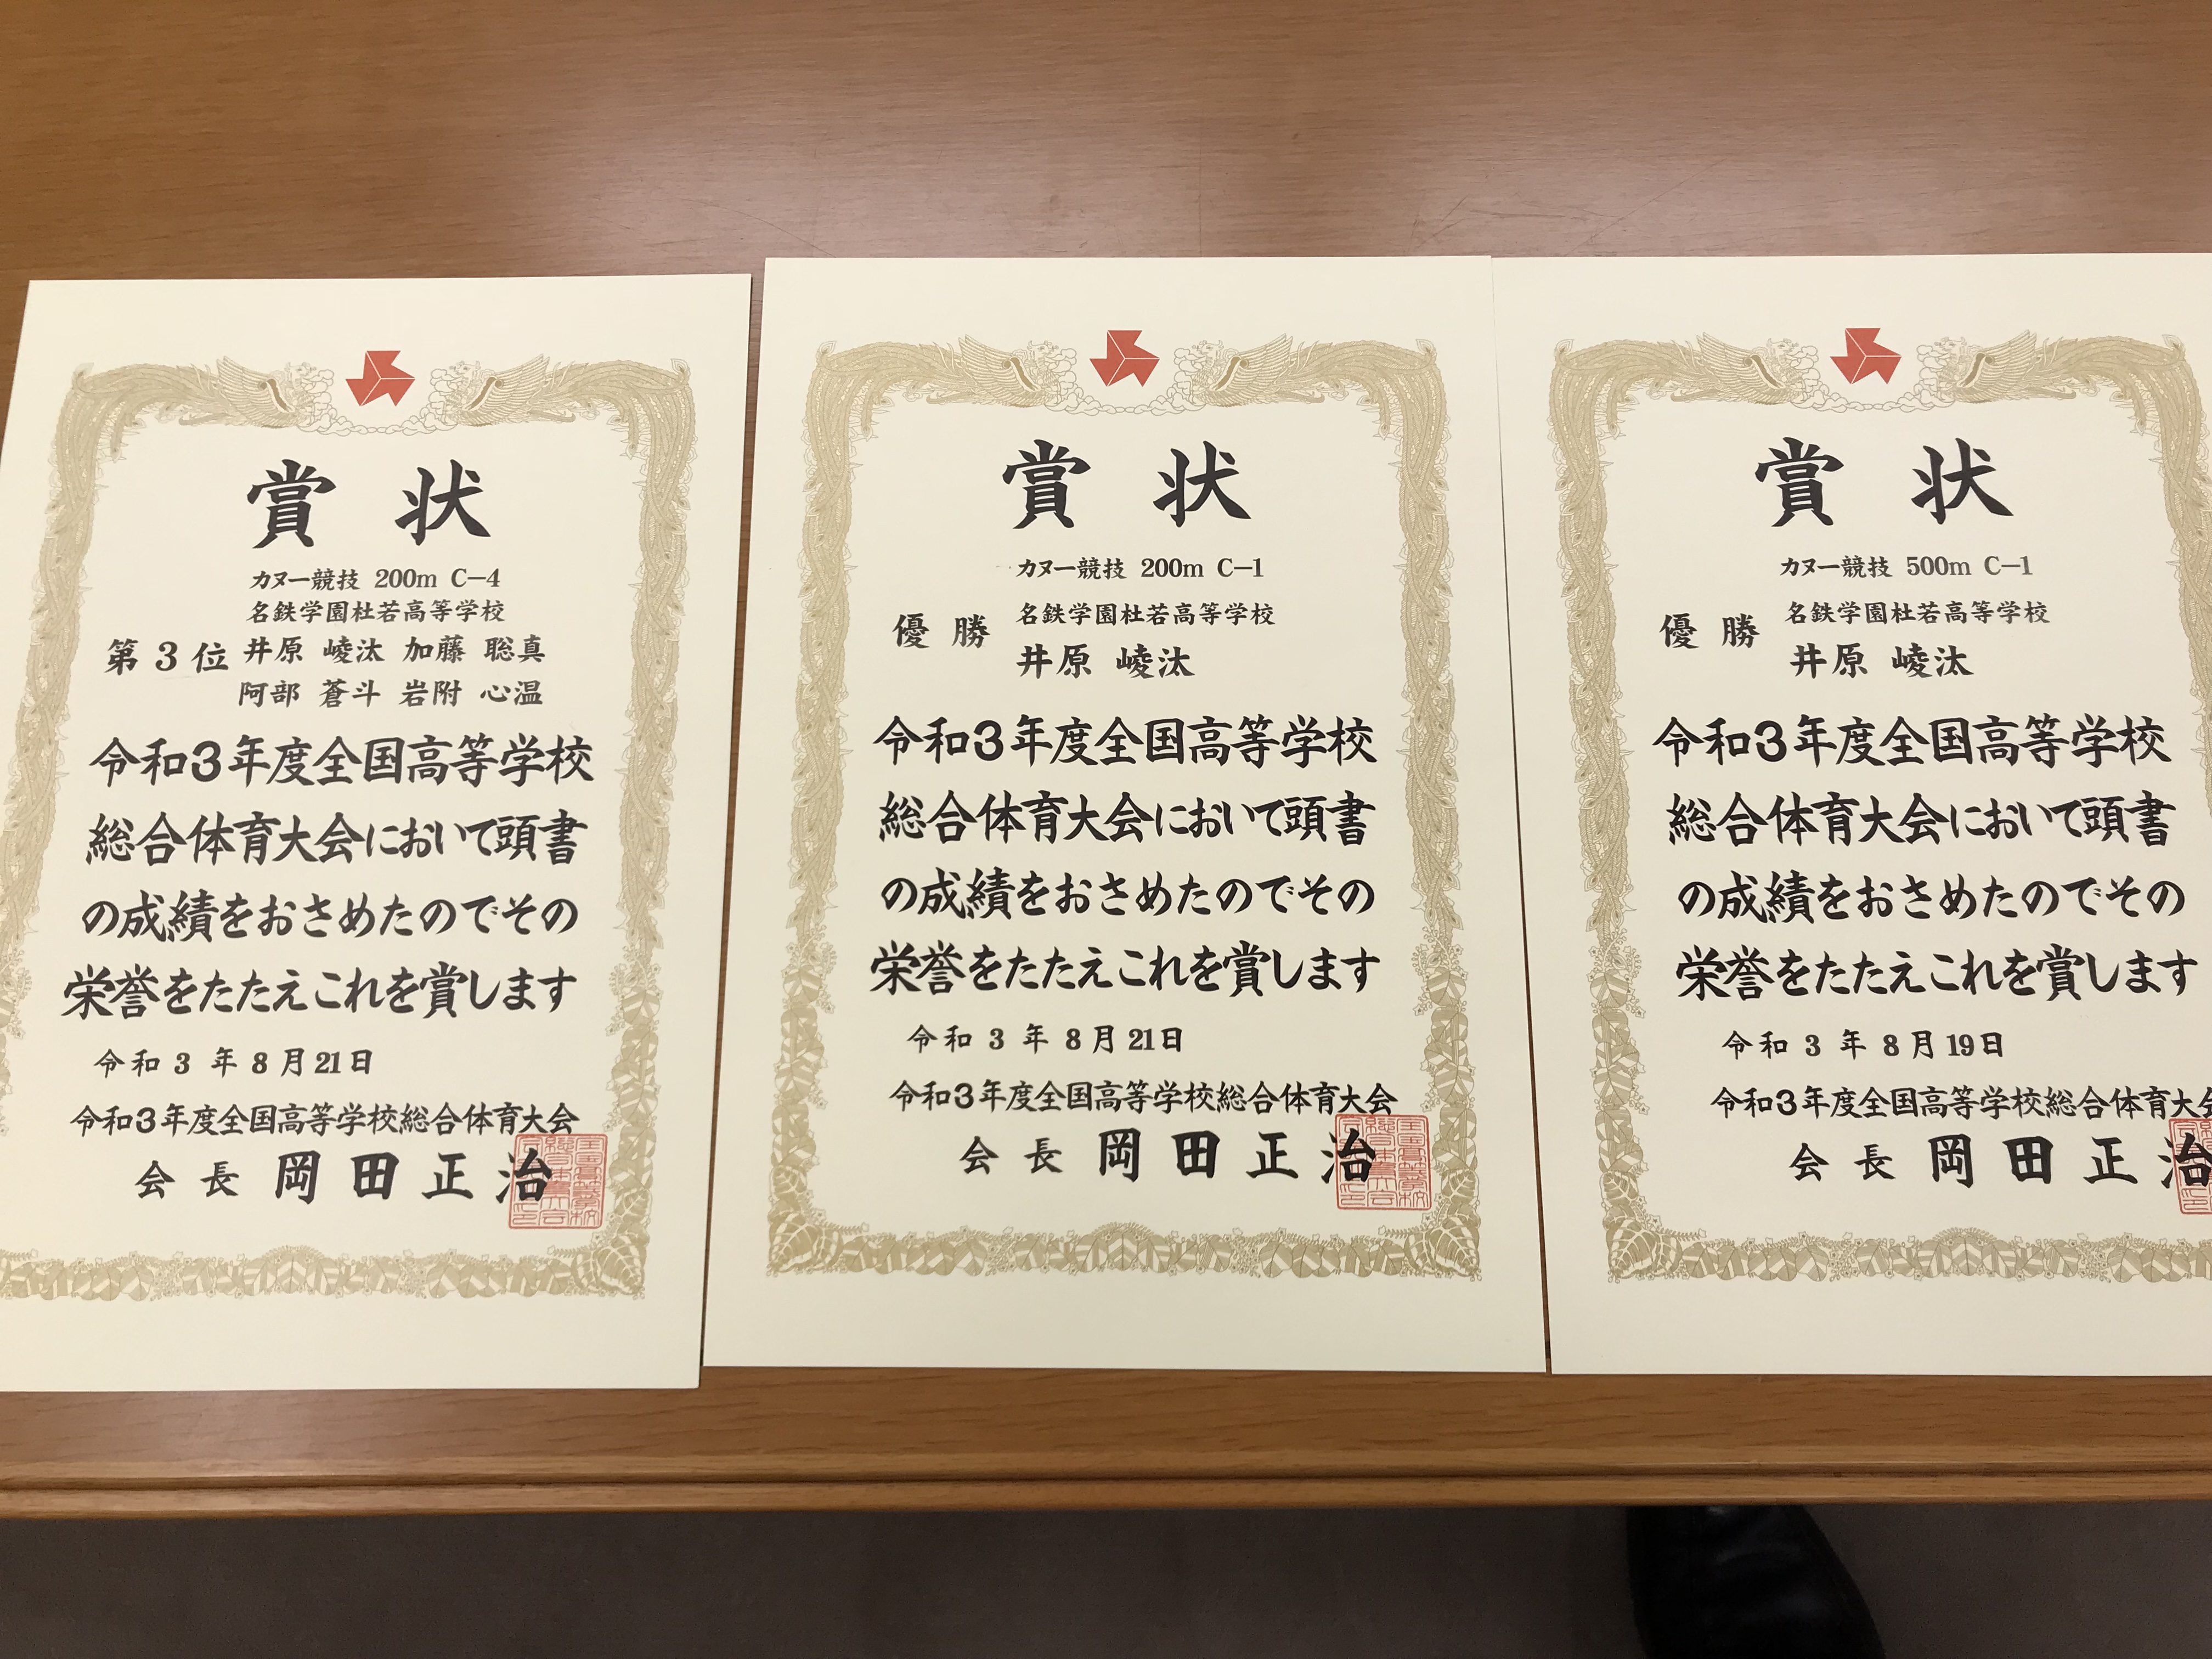 賞状
カヌー競技 200m C-4
名鉄学園杜若高等学校
第3位 井原 崚汰 加藤 聡真
阿部 蒼斗 岩附 心温
令和3年度全国高等学校
総合体育大会において頭書
の成績をおさめたのでその
栄誉をたたえこれを賞します
令和 3 年 8 月 21日
令和3年度全国高等学校総合体育大会
会長 岡田正治
賞状
カヌー競技 200m C-1
名鉄学園杜若高等学校
優勝
井原 崚汰
令和3年度全国高等学校
総合体育大会において頭書
の成績をおさめたのでその
栄誉をたたえこれを賞します
令和 3 年 8 月 21日
令和3年度全国高等学校総合体育大会
会長 岡田正治
賞状
カヌー競技 500m C-1
名鉄学園杜若高等学校
優勝
井原 崚汰
令和3年度全国高等学校
総合体育大会において頭書
の成績をおさめたのでその
栄誉をたたえこれを賞します
令和 3 年 8 月 19日
令和3年度全国高等学校総合体育大会
会長 岡田正治